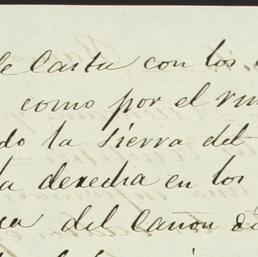 de Casta con los
como por el
do la sierra del
la derecha en los
del Cañon